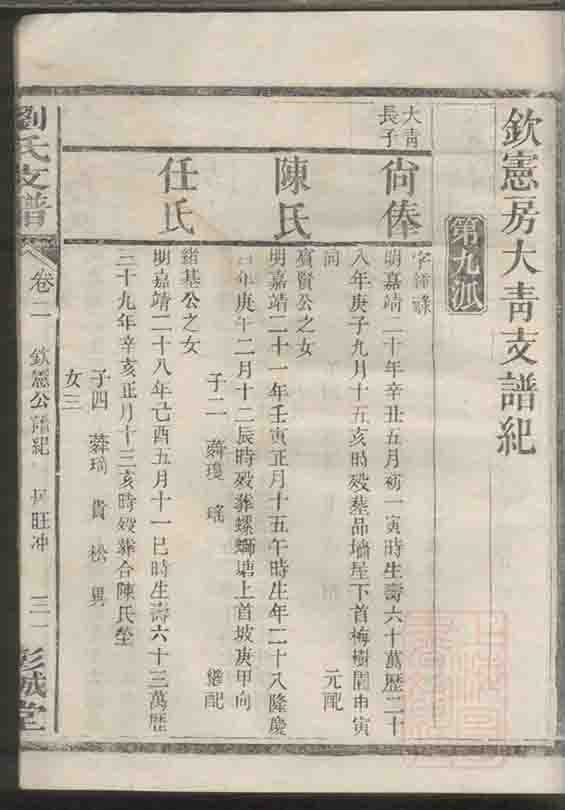 欽憲房大靑支譜紀
第九派
大靑
長子
尙俸
字
明嘉靖二十年辛丑五月初一寅時生壽六十萬歷二十
八年庚子九月十五亥時歿葬品塘屋下首梅樹園申寅
向
元配
陳氏
賓賢公之女
明嘉靖二十一年壬寅正月十五午時生年二十八隆慶
年庚午二月十二辰時歿葬螺螄塘上首坡庚甲向
子二 蕣瓊 瑤
繼配
任氏
緒基公之女
明嘉靖二十八年己酉五月十一巳時生壽六十三萬歷
三十九年辛亥正月十三亥時歿葬合陳氏塋
子四 蕣瑀 貴 松
女三
劉氏支譜
卷二
欽憲公譜紀
旺冲
三一
彭城堂